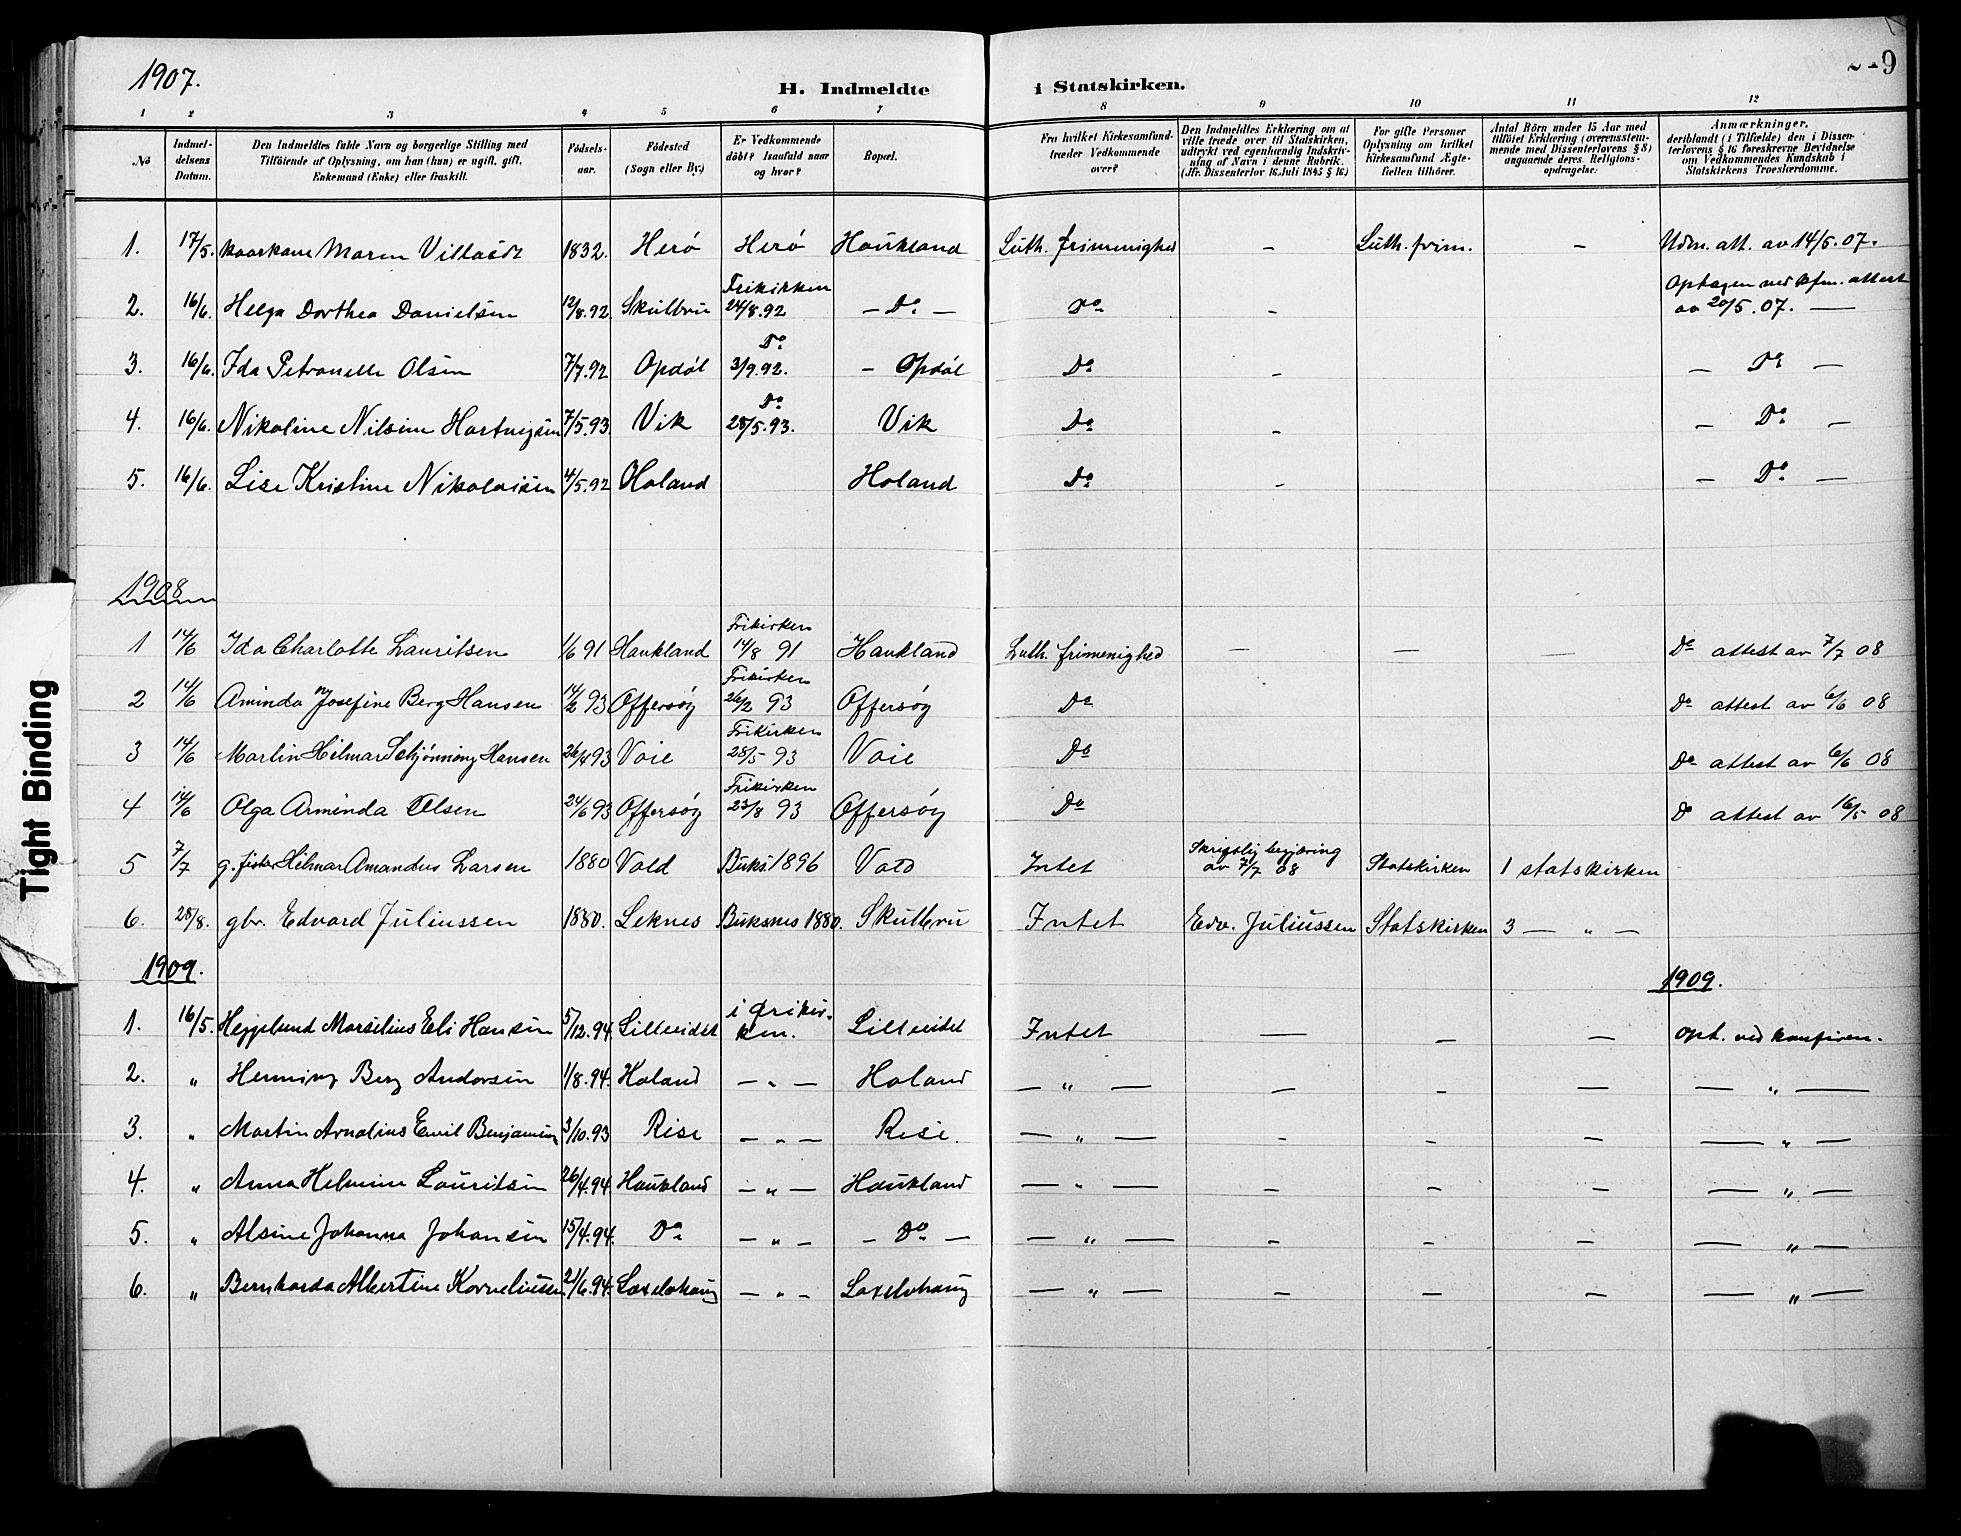 1907.
H. Indmeldte i Statskirken.
9
1 2 3 4 5 6 7 8 9 10 11 12
No
Indmel-
delsens
Datum.
Den Indmeldtes fulde Navn og borgerlige Stilling med
Tilföiende af Oplysning, om han (hun) er ugift, gift,
Enkemand (Enke) eller fraskilt.
Födsels-
aar.
Födested
(Sogn eller By.)
Er Vedkommende
döbt? Isaafald naar
og hvor?
Bopæl.
Fra hvilket Kirkesamfund
træder Vedkommende
over?
Den Indmeldtes Erklæring om at
ville træde over til Statskirken,
udtrykt ved egenhændig Indskriv-
ning af Navn i denne Rubrik.
(Jfr. Dissenterlov 16 Juli 1845 § 16)
For gifte Personer
Oplysning om hvilket
Kirkesamfund Ægte-
fællen tilhörer.
Antal Börn under 15 Aar med
tilföiet Erklæring (overensstem-
mende med Dissenterlovens § 8)
angaaende deres Religions-
opdragelse.
Anmærkninger,
deriblandt (i Tilfælde) den i Dissen-
terlovens § 16 foreskrevne Bevidnelse
om Vedkommendes Kundskab i
Statskirkens Troeslærdomme.
1. 17/5. kaarkone Maren 1832. Herö Herö Haukland Luth. frimenighed - Luth. frim. - Udm. att. av 14/5.07.
2. 16/6. Helga Dorthea Danielsen 12/8.92 Skulbru Frikirken 24/8.92 - Do - Do - Optagen ved kfm. attest av 20/5.07. -
3. 16/6. Ida Petronelle Olsen 7/7.92 Opdøl Do 3/9.92. - Opdøl Do - - Do -
4. 16/6. Nikoline Nilsine Hartvigsen 7/5.93. Vik Do 28/5.93. Vik Do - - Do -
5. 16/6. Lise Kristine Nikolaisen 4/5.92 Holand Holand Do - - Do -
1908
1 14/6 Ida Charlotte Lauritsen 1/6 91 Haukland Frikirken 14/8 91 Haukland Luth. frimenighed - - - Do attest av 7/7 08
2 14/6 Aminda Josefine Berg Hansen 14/2 93 Offersøy Frikirken 26/2 93 Offersøy Do Do attest av 6/6 08
3 14/6 Martin Hilmar Schjønning Hansen 26/4 93 Voie Frikirken 28/5 93 Voie Do Do attest av 6/6 08
4 14/6 Olga Arminda Olsen 24/6 93 Offersøy Frikirken 23/8 93 Offersøy Do Do attest av 16/5 08
5 7/7 g. fisker Hilmar Amandus Larsen 1880 Vold Buks. 1896 Vold Intet Skriftlig begjæring av 7/7 08 Statskirken 1 statskirken
6. 28/8. gbr. Edvard Juliussen 1880. Leknes Buksnes 1880. Skulbru Intet Edv. Juliussen Statskirken 3 - " -
1909. 1909.
1. 16/5. Heggelund Marselius Eli Hansen 5/12.94. Lilleeidet i Frikirken. Lilleeidet Intet - - - opt. ved konfirm.
2. " Henning Berg Andersen 1/8.94. Holand - " - Holand - " - - - - - " -
3. " Martin Arnolius Emil Benjaminsen 3/10.93 Rise - " - Rise. - " - - - - - " -
4. " Anna Helmine Lauritsen 26/4.94. Haukland - " - Haukland - " - - - - - " -
5. " Alsine Johanna Johansen 15/4.94. Do - " - - Do - - " - - - - - " -
6. " Bernharda Albertine Korneliussen 21/6.94. Laxelvhaug - " - Laxelvhaug - " - - - - - " -
Tight Binding